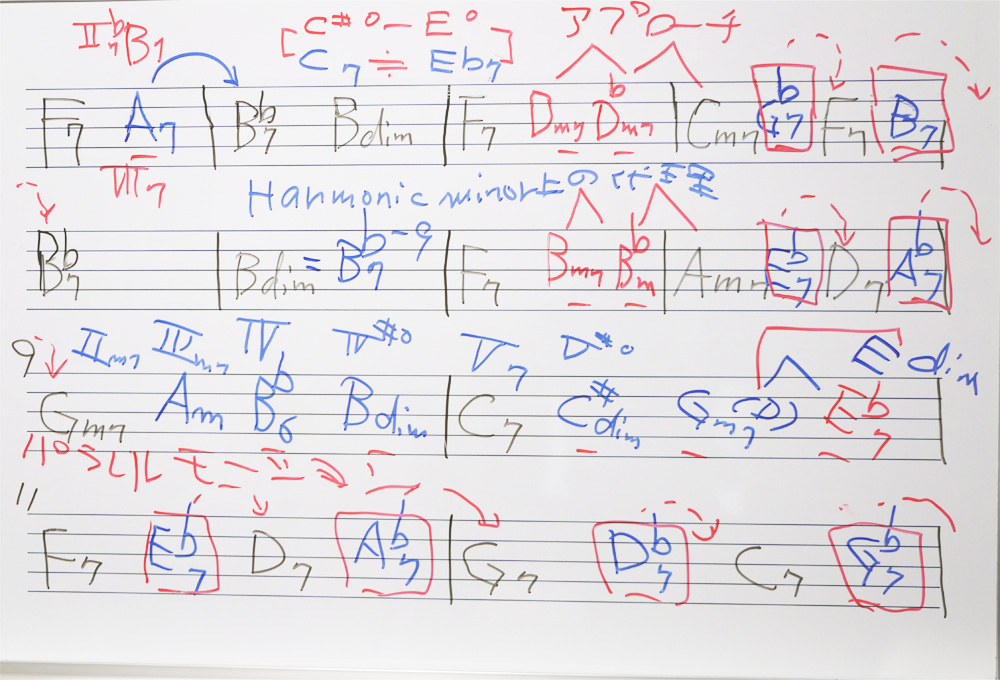 [C#o－Eo] アプローチ
C7≒Eb7
F7 A7 Bb7 Bdim F7 Dm7 Dbm7 Cm7 Gb7 F7 B7
VII7
Harmonic minor上の代理
Bb7 Bdim = Bb7 b-9 F7 Bm7 Bbm Am7 Eb7 D7 Ab7
9 IIm7 IIIm7 IV IV#o V7 V#o Edim
Gm7 Am Bb6 Bdim C7 C#dim Gm7(D) Eb7
パラレルモーション
11
F7 Eb7 D7 Ab7 G7 Db7 C7 Gb7